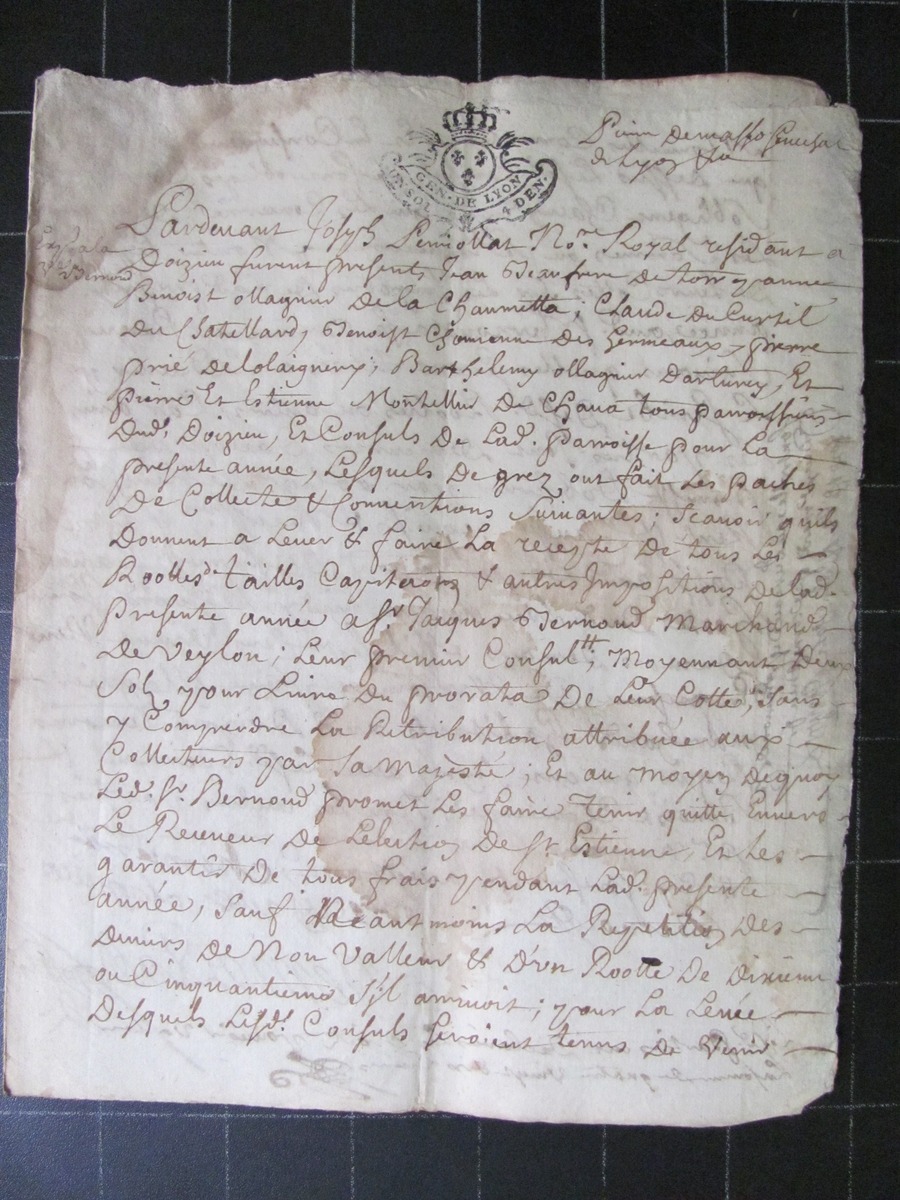 GEN. DE LYON
UN SOL 4 DEN.
de Lyon
Pardevant Joseph Perriollat No.re Royal residant a
Doizieu furent presents Jean
Benoist ollagnier de la Chaumetta; Claude du Curtil
du Chatellard, Benoist Chomienne des Hermeaux, pierre
prié Barthelemy ollagnier Et
pierre Et Estienne Montellier de Chava tous parroissiens
dud. Doizieu, Et Consuls de Lad. parroisse pour La
presente année, Lesquels de grez ont fait Les paches
de Collecte & Conventions Suivantes; Scavoir quils
Donnent a Lever & faire La recepte de tous Les
Roolles de tailles Capitaôn & autres Impositions de lad.
presente année a Sr. Jacques Bernoud Marchand
de Veylon; Leur premier Consul tt; Moyennant deux
Solz pour Livre du prorata de Leur Cotte, Sans
y Comprendre La Retribution attribuée aux
Collecteurs par Sa Majesté; Et au moyen dequoy
Led. Sr. Bernoud promet Les faire tenir quitte Envers
Le Receveur de Lelection de St. Estienne, Et Les
garantir de tous frais pendant Lad. presente
année, Sauf Neantmoins La Repetition des
deniers de Non Valleur & d'un Roolle de dixieme
ou Cinquantieme S'il arrivoit; pour La Levée
desquels Lesd. Consuls seroient tenus de Venir